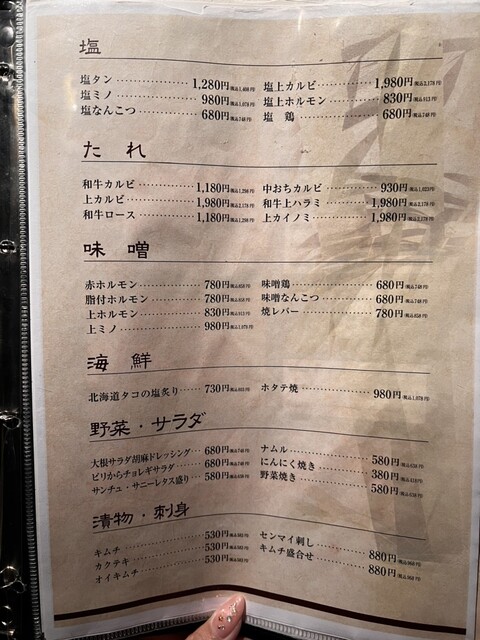 塩
塩タン 1,280円(税込1,408円)
塩ミノ 980円(税込1,078円)
塩なんこつ 680円(税込748円)
塩上カルビ 1,980円(税込2,178円)
塩上ホルモン 830円(税込913円)
塩 鶏 680円(税込748円)
たれ
和牛カルビ 1,180円(税込1,298円)
上カルビ 1,980円(税込2,178円)
和牛ロース 1,180円(税込1,298円)
中おちカルビ 930円(税込1,023円)
和牛上ハラミ 1,980円(税込2,178円)
上カイノミ 1,980円(税込2,178円)
味噌
赤ホルモン 780円(税込858円)
脂付ホルモン 780円(税込858円)
上ホルモン 830円(税込913円)
上ミノ 980円(税込1,078円)
味噌鶏 680円(税込748円)
味噌なんこつ 680円(税込748円)
焼レバー 780円(税込858円)
海鮮
北海道タコの塩炙り 730円(税込803円)
ホタテ焼 980円(税込1,078円)
野菜・サラダ
大根サラダ胡麻ドレッシング 680円(税込748円)
ピリからチョレギサラダ 680円(税込748円)
サンチュ・サニーレタス盛り 580円(税込638円)
ナムル 580円(税込638円)
にんにく焼き 380円(税込418円)
野菜焼き 580円(税込638円)
漬物・刺身
キムチ 530円(税込583円)
カクテキ 530円(税込583円)
オイキムチ 530円(税込583円)
センマイ刺し 880円(税込968円)
キムチ盛合せ 880円(税込968円)